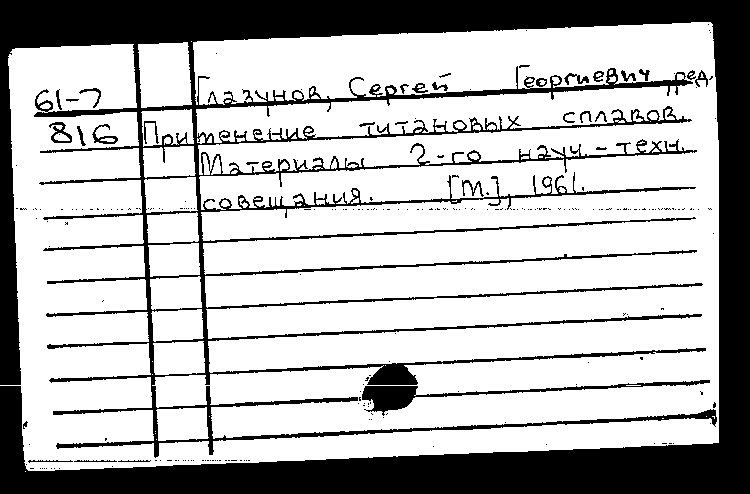 61-7 Глазунов, Сергей Георгиевич ред.
816 Применение титановых сплавов.
Материалы 2-го науч.-техн.
совещания. [М.], 1961.